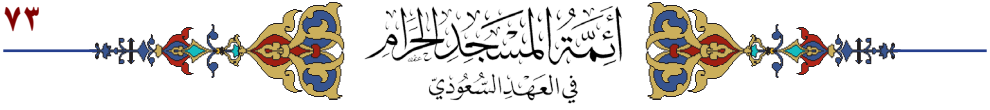 ٧٣
أَئِمَّةُ المَسْجِدِ الحَرَامِ
فِي العَهْدِ السُّعُودِيِّ